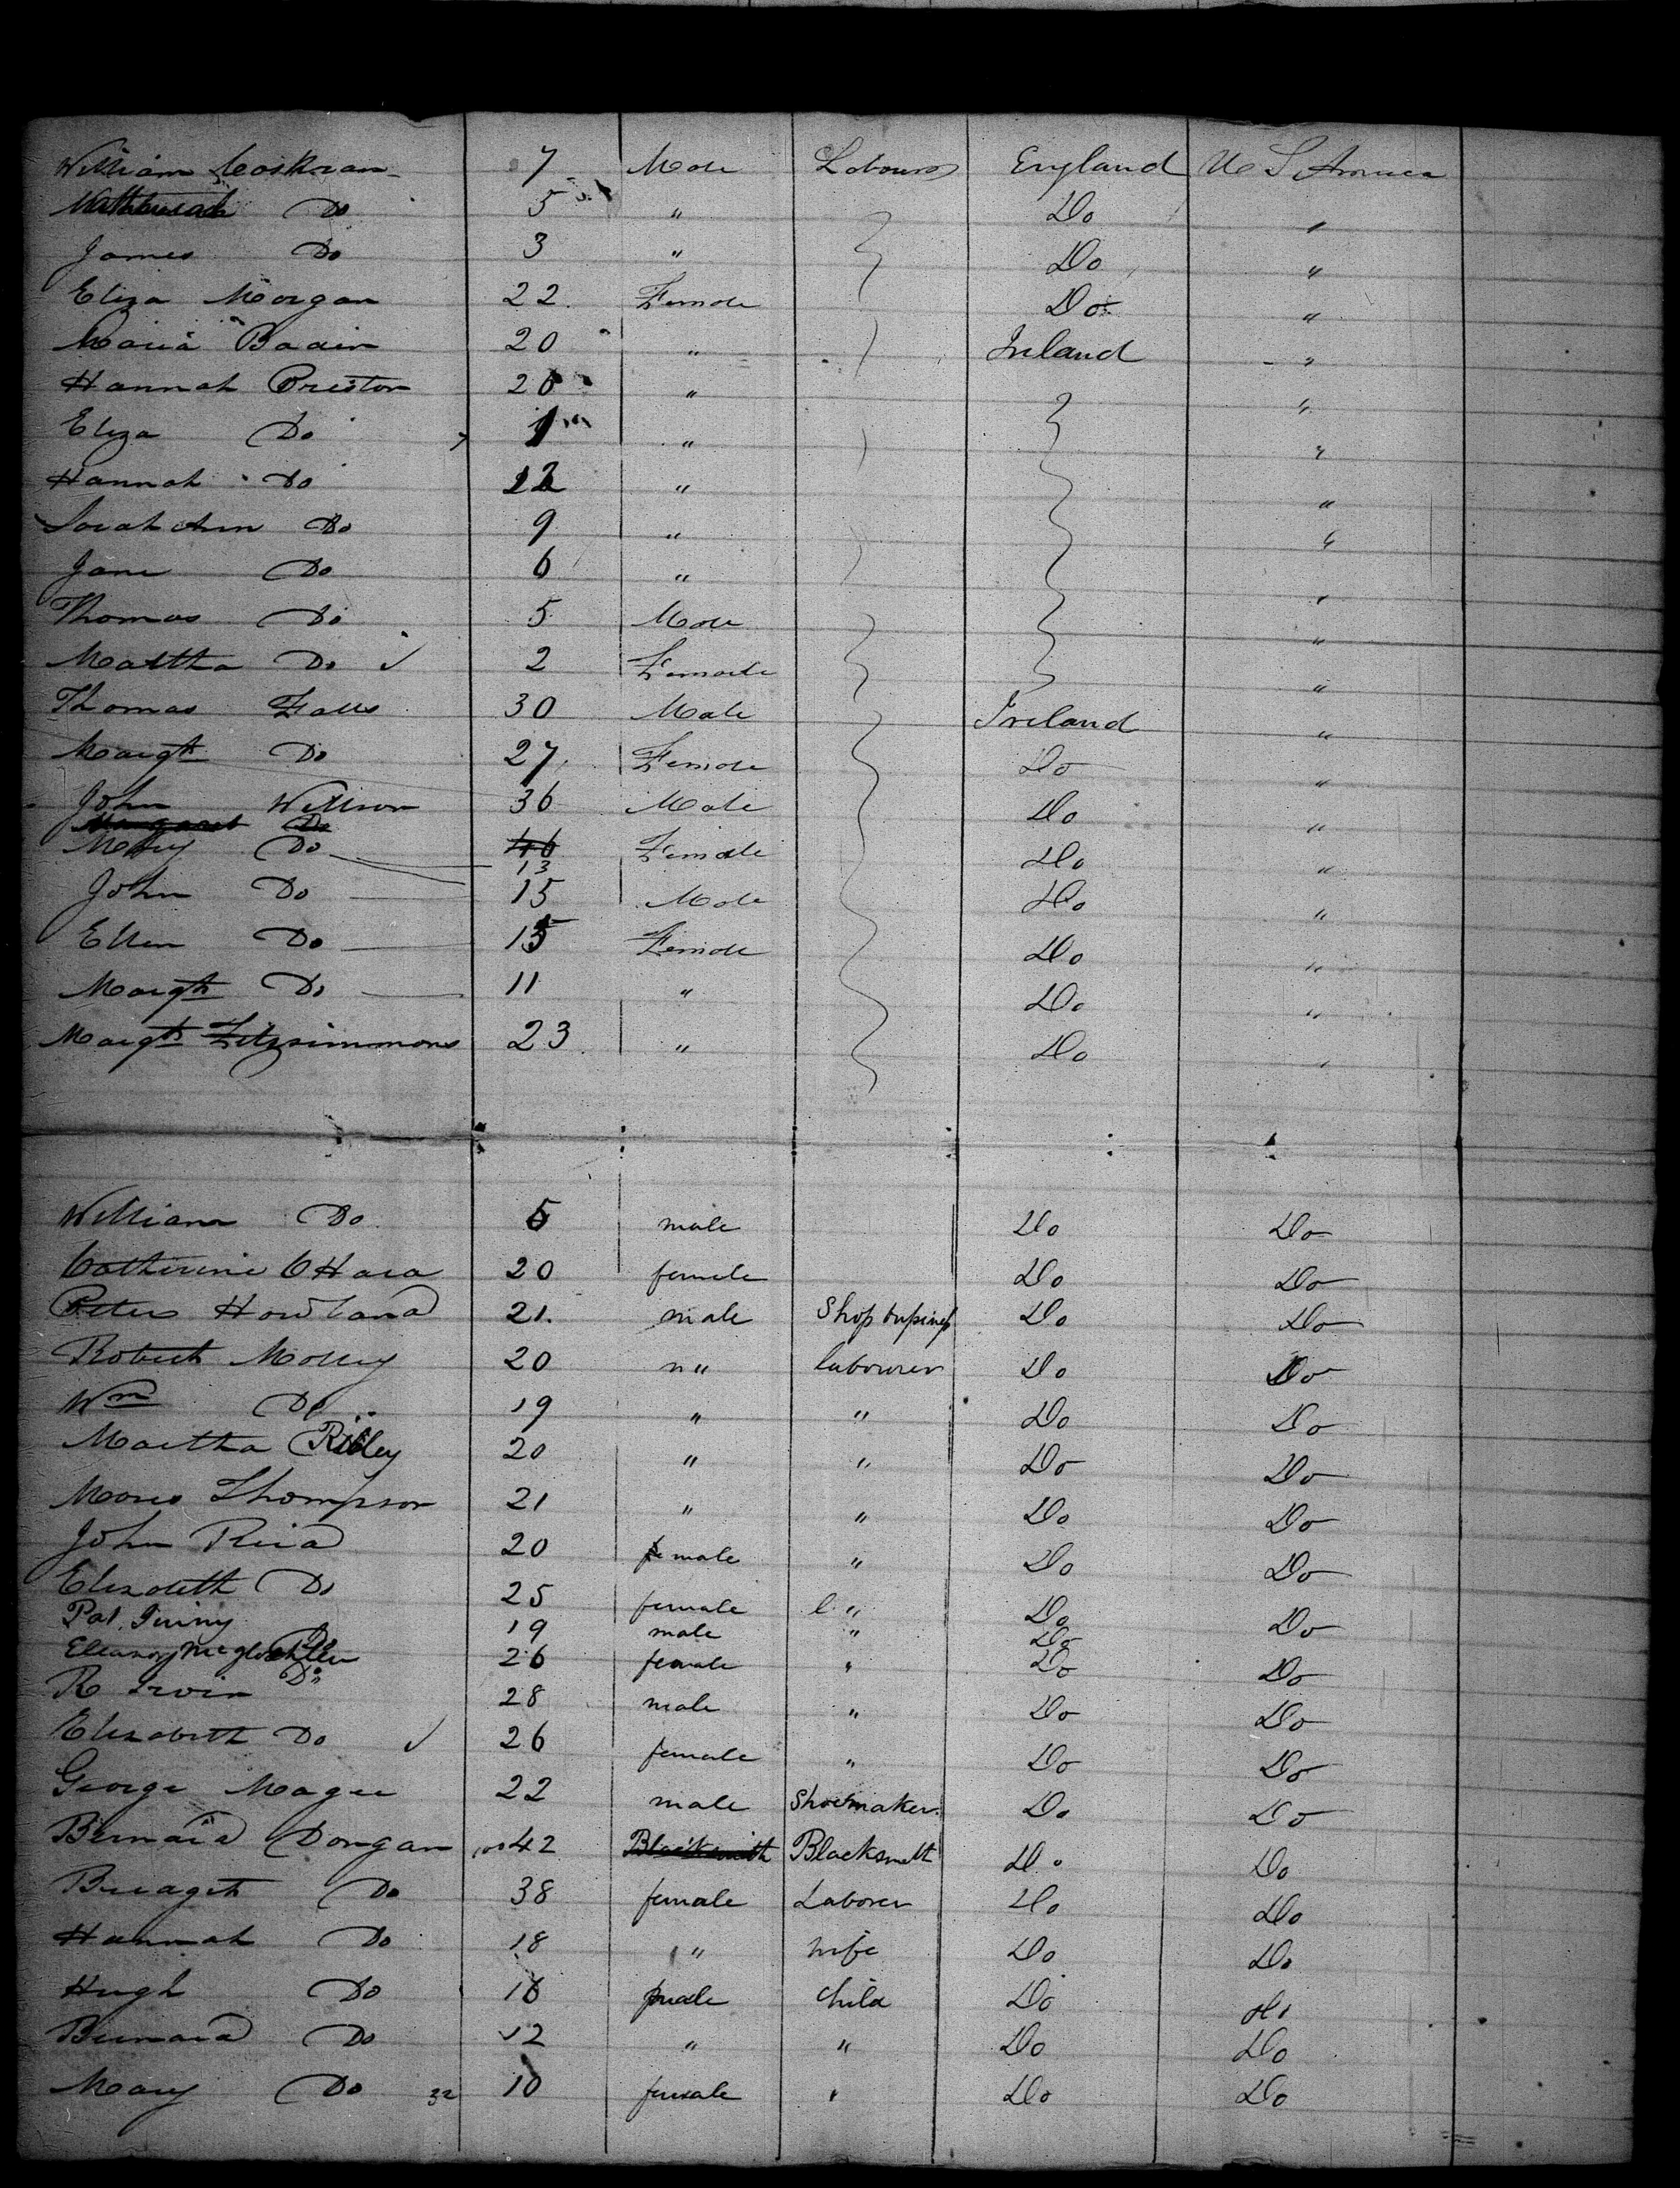 William Coskran 7 Male Labourer England U S America
Do 5 " Do "
James Do 3 " Do "
Eliza Morgan 22 Female Do "
Maria 20 " Ireland "
Hannah Preston 26 " "
Eliza Do 1 " "
Hannah Do 12 " "
Sarah Ann Do 9 " "
Jane Do 6 " "
Thomas Do 5 Male "
Martha Do ✓ 2 Female "
Thomas Falls 30 Male Ireland "
Margt Do 27 Female Do "
John Willson 36 Male Do "
Margaret Do
Mary Do 13 Female Do "
John Do 15 Male Do "
Ellen Do 15 Female Do "
Margt Do 11 " Do "
Margt Fitzsimmons 23 " Do "
William Do 5 male Do Do
Catherine OHara 20 female Do Do
Peter Howland 21 male Shop Do Do
Robert Molley 20 " labourer Do Do
Wm Do 19 " " Do Do
Martha 20 " " Do Do
Moses Thompson 21 " " Do Do
John Reid 20 male " Do Do
Elizabeth Do 25 female " Do Do
Pat 19 male " Do
Eleanor 26 female " Do Do
R Irvin 28 male " Do Do
Elizabeth Do ✓ 26 female " Do Do
George Magee 22 male Shoemaker Do Do
Bernard Dongan 42 Blacksmith Blacksmith Do Do
Bridget Do 38 female Laborer Do Do
Hannah Do 18 " wife Do Do
Hugh Do 16 male child Do Do
Bernard Do 12 " " Do Do
Mary Do 32 10 female " Do Do